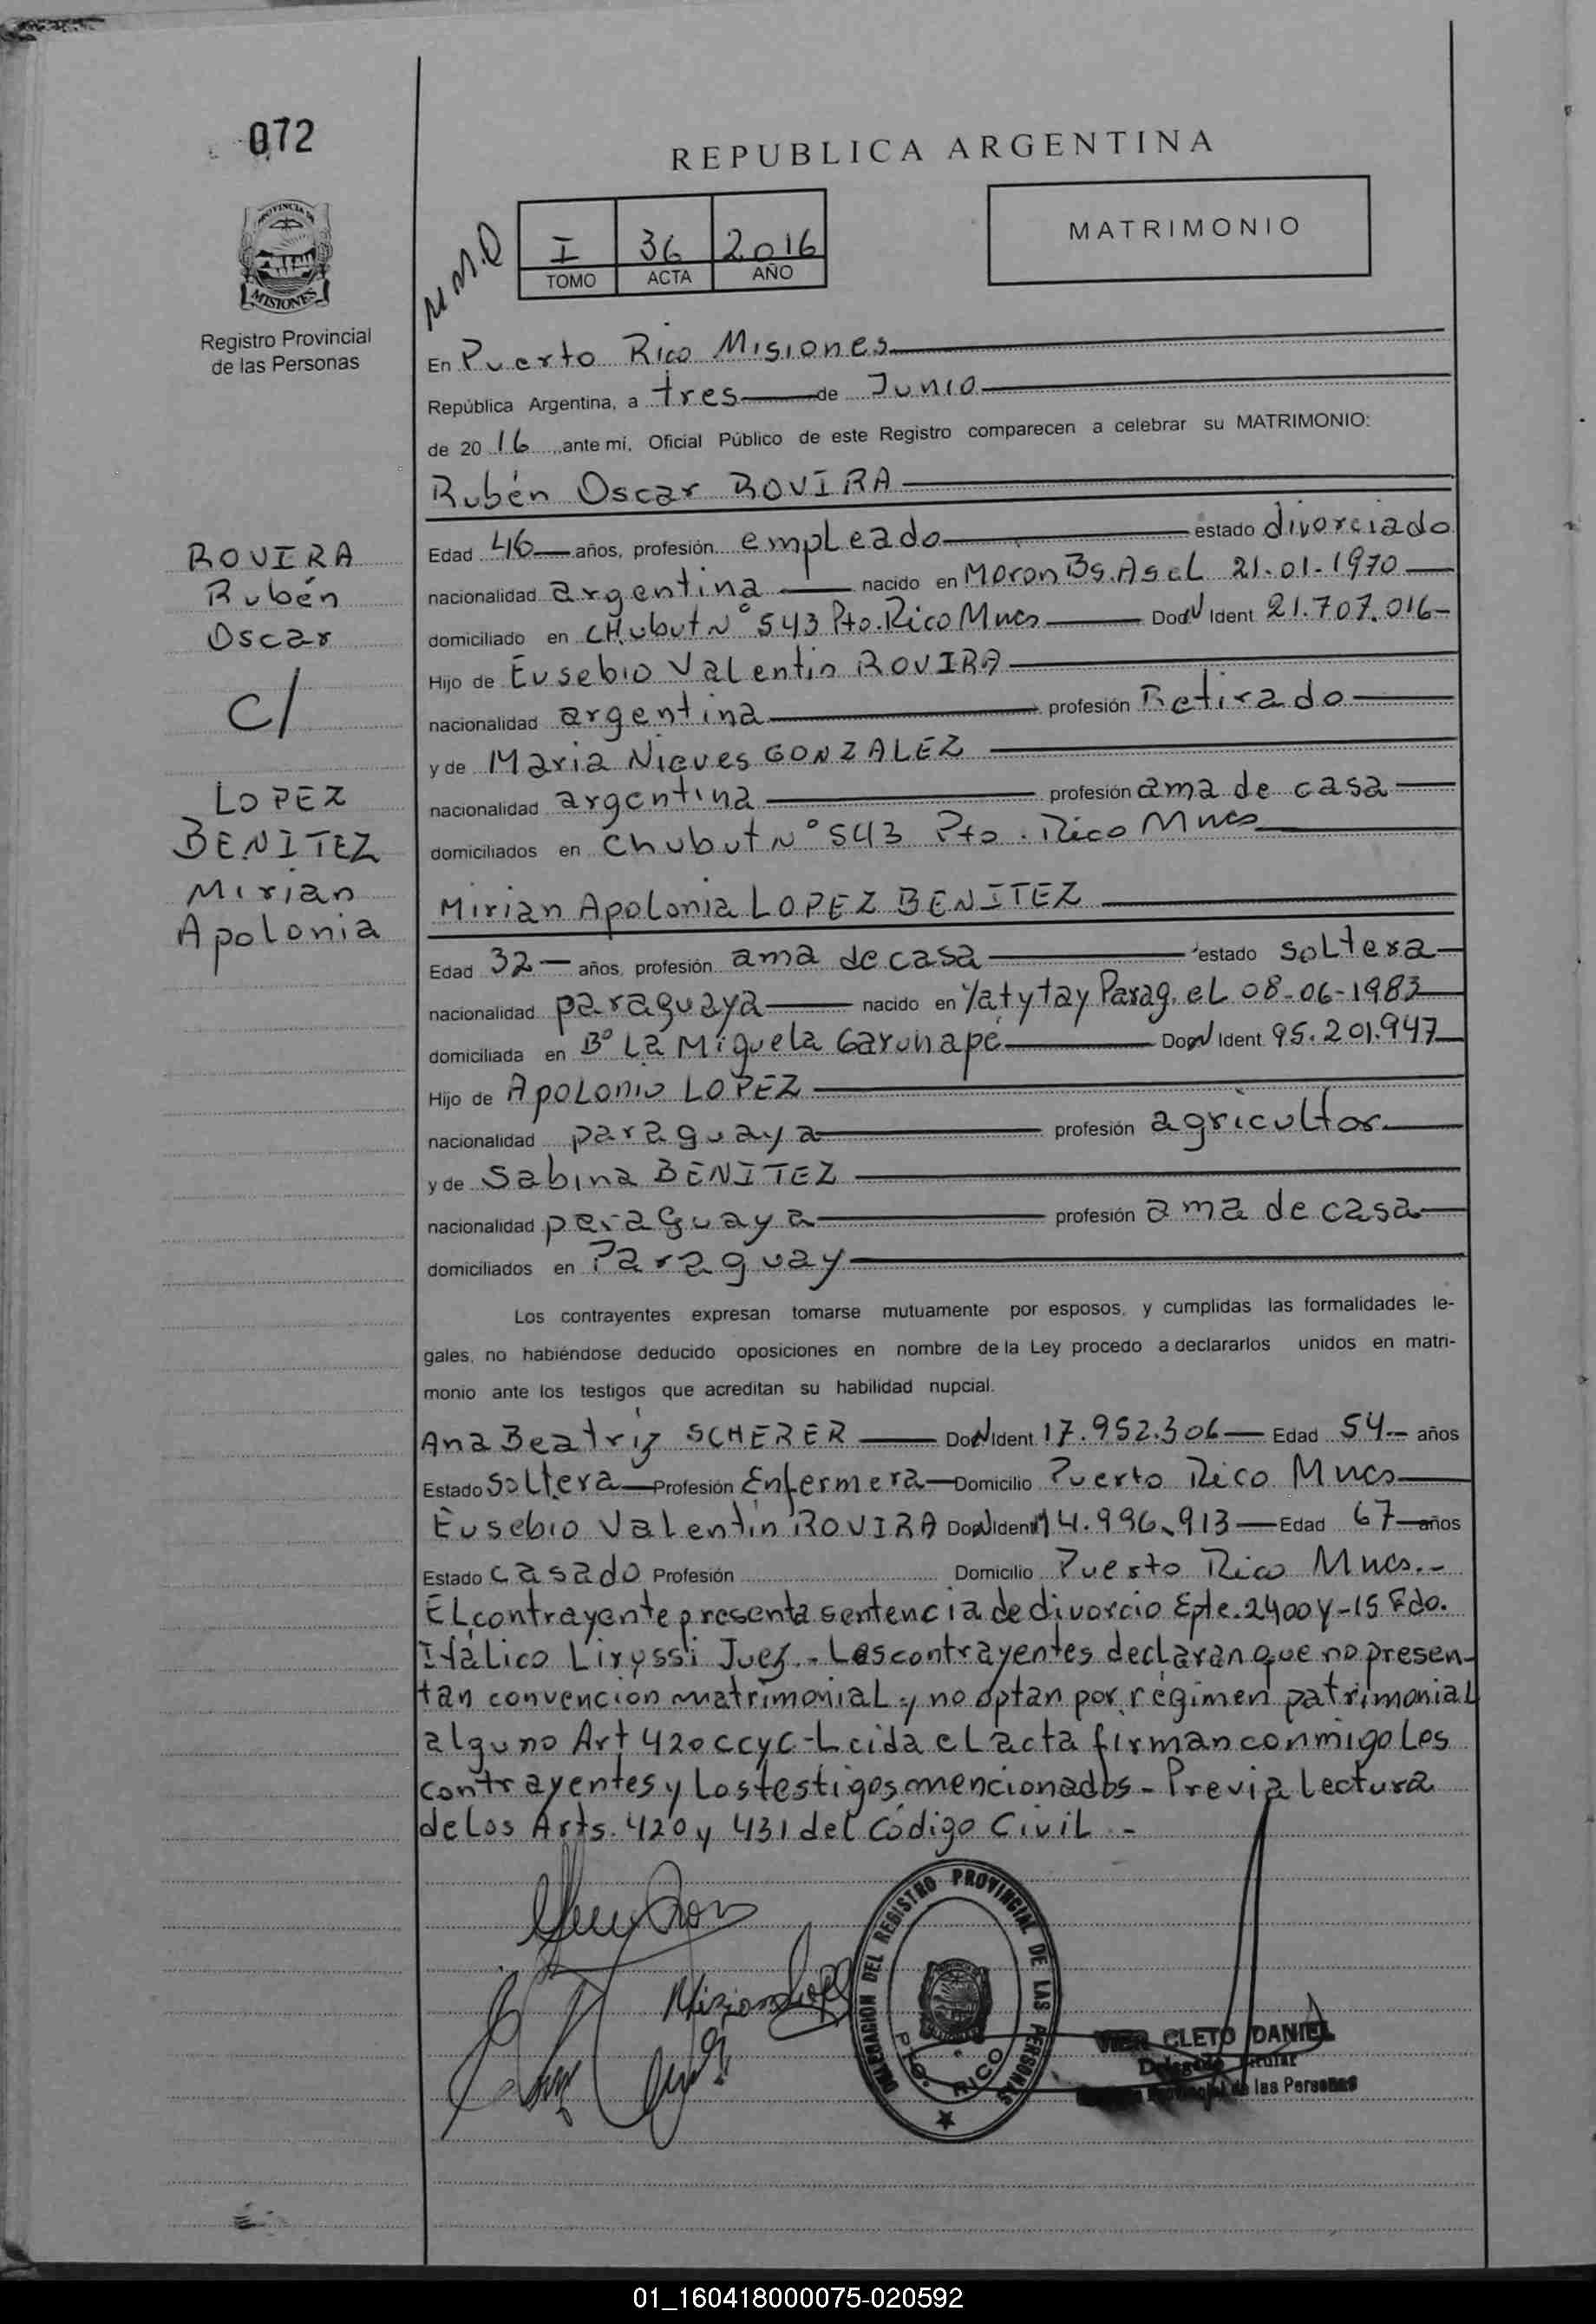 072
REPUBLICA ARGENTINA
I 36 2016
TOMO ACTA AÑO
MATRIMONIO
PROVINCIA DE
MISIONES
Registro Provincial
de las Personas
En Puerto Rico Misiones
República Argentina, a tres de Junio
de 20 16 ante mí, Oficial Público de este Registro comparecen a celebrar su MATRIMONIO:
Rubén Oscar ROVIRA
ROVIRA
Rubén
Oscar
c/
LOPEZ
BENITEZ
Mirian
Apolonia
Edad 46 años, profesión empleado estado divorciado
nacionalidad argentina nacido en Moron Bs.As el 21-01-1970
domiciliado en CHubut N° 543 Pto.Rico Mnes Doc Ident 21.707.016-
Hijo de Eusebio Valentin ROVIRA
nacionalidad argentina profesión Retirado
y de Maria Nieves GONZALEZ
nacionalidad argentina profesión ama de casa
domiciliados en Chubut N° 543 Pto. Rico Mnes
Mirian Apolonia LOPEZ BENITEZ
Edad 32 años, profesión ama de casa estado soltera
nacionalidad paraguaya nacido en Yatytay Parag. el 08-06-1983
domiciliada en B° La Miguela Garuhapé Doc Ident 95.201.947
Hijo de Apolonio LOPEZ
nacionalidad paraguaya profesión agricultor
y de Sabina BENITEZ
nacionalidad paraguaya profesión ama de casa
domiciliados en Paraguay
Los contrayentes expresan tomarse mutuamente por esposos, y cumplidas las formalidades le-
gales, no habiéndose deducido oposiciones en nombre de la Ley procedo a declararlos unidos en matri-
monio ante los testigos que acreditan su habilidad nupcial.
Ana Beatriz SCHERER Doc Ident 17.952.306 Edad 54 años
Estado soltera Profesión Enfermera Domicilio Puerto Rico Mnes
Eusebio Valentin ROVIRA Doc Ident 14.996.913 Edad 67 años
Estado casado Profesión Domicilio Puerto Rico Mnes.-
El contrayente presenta sentencia de divorcio Epte. 2400Y-15 Fdo.
Itálico Liryssi Juez.- Los contrayentes declaran que no presen-
tan convencion matrimonial y no optan por régimen patrimonial
alguno Art 420 CCyC-Leida el acta firman conmigo los
contrayentes y los testigos mencionados - Previa lectura
de los Arts. 420 y 431 del Código Civil.-
Mirian Lopez
DELEGACION DEL REGISTRO PROVINCIAL DE LAS PERSONAS
PTO. RICO
VIER CLETO DANIEL
Delegado Titular
Registro Provincial de las Personas
01_160418000075-020592